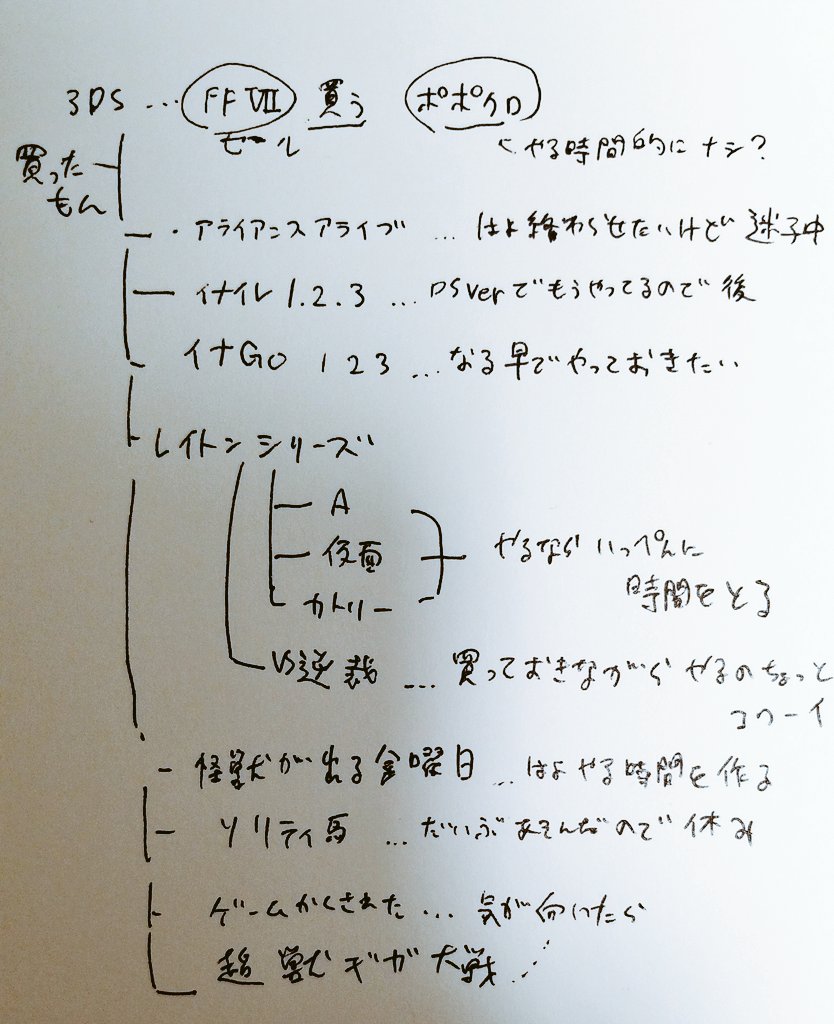 3DS … FFVII 買う ポポクロ
セール
くやる時間的にナシ?
買った
もん
・アライアンスアライブ … はよ終わらせたいけど迷子中
イナイレ 1.2.3 … DSverでもうやってるので後
イナGO 1 2 3 … なる早でやっておきたい
レイトンシリーズ
A
仮面
カトリー
やるならいっぺんに
時間をとる
VS逆裁 … 買っておきながらやるのちょっと
コワーイ
怪獣が出る金曜日 … はよやる時間を作る
ソリティ馬 … だいぶあそんだので休み
ゲームかくされた … 気が向いたら
超獣ギガ大戦 …